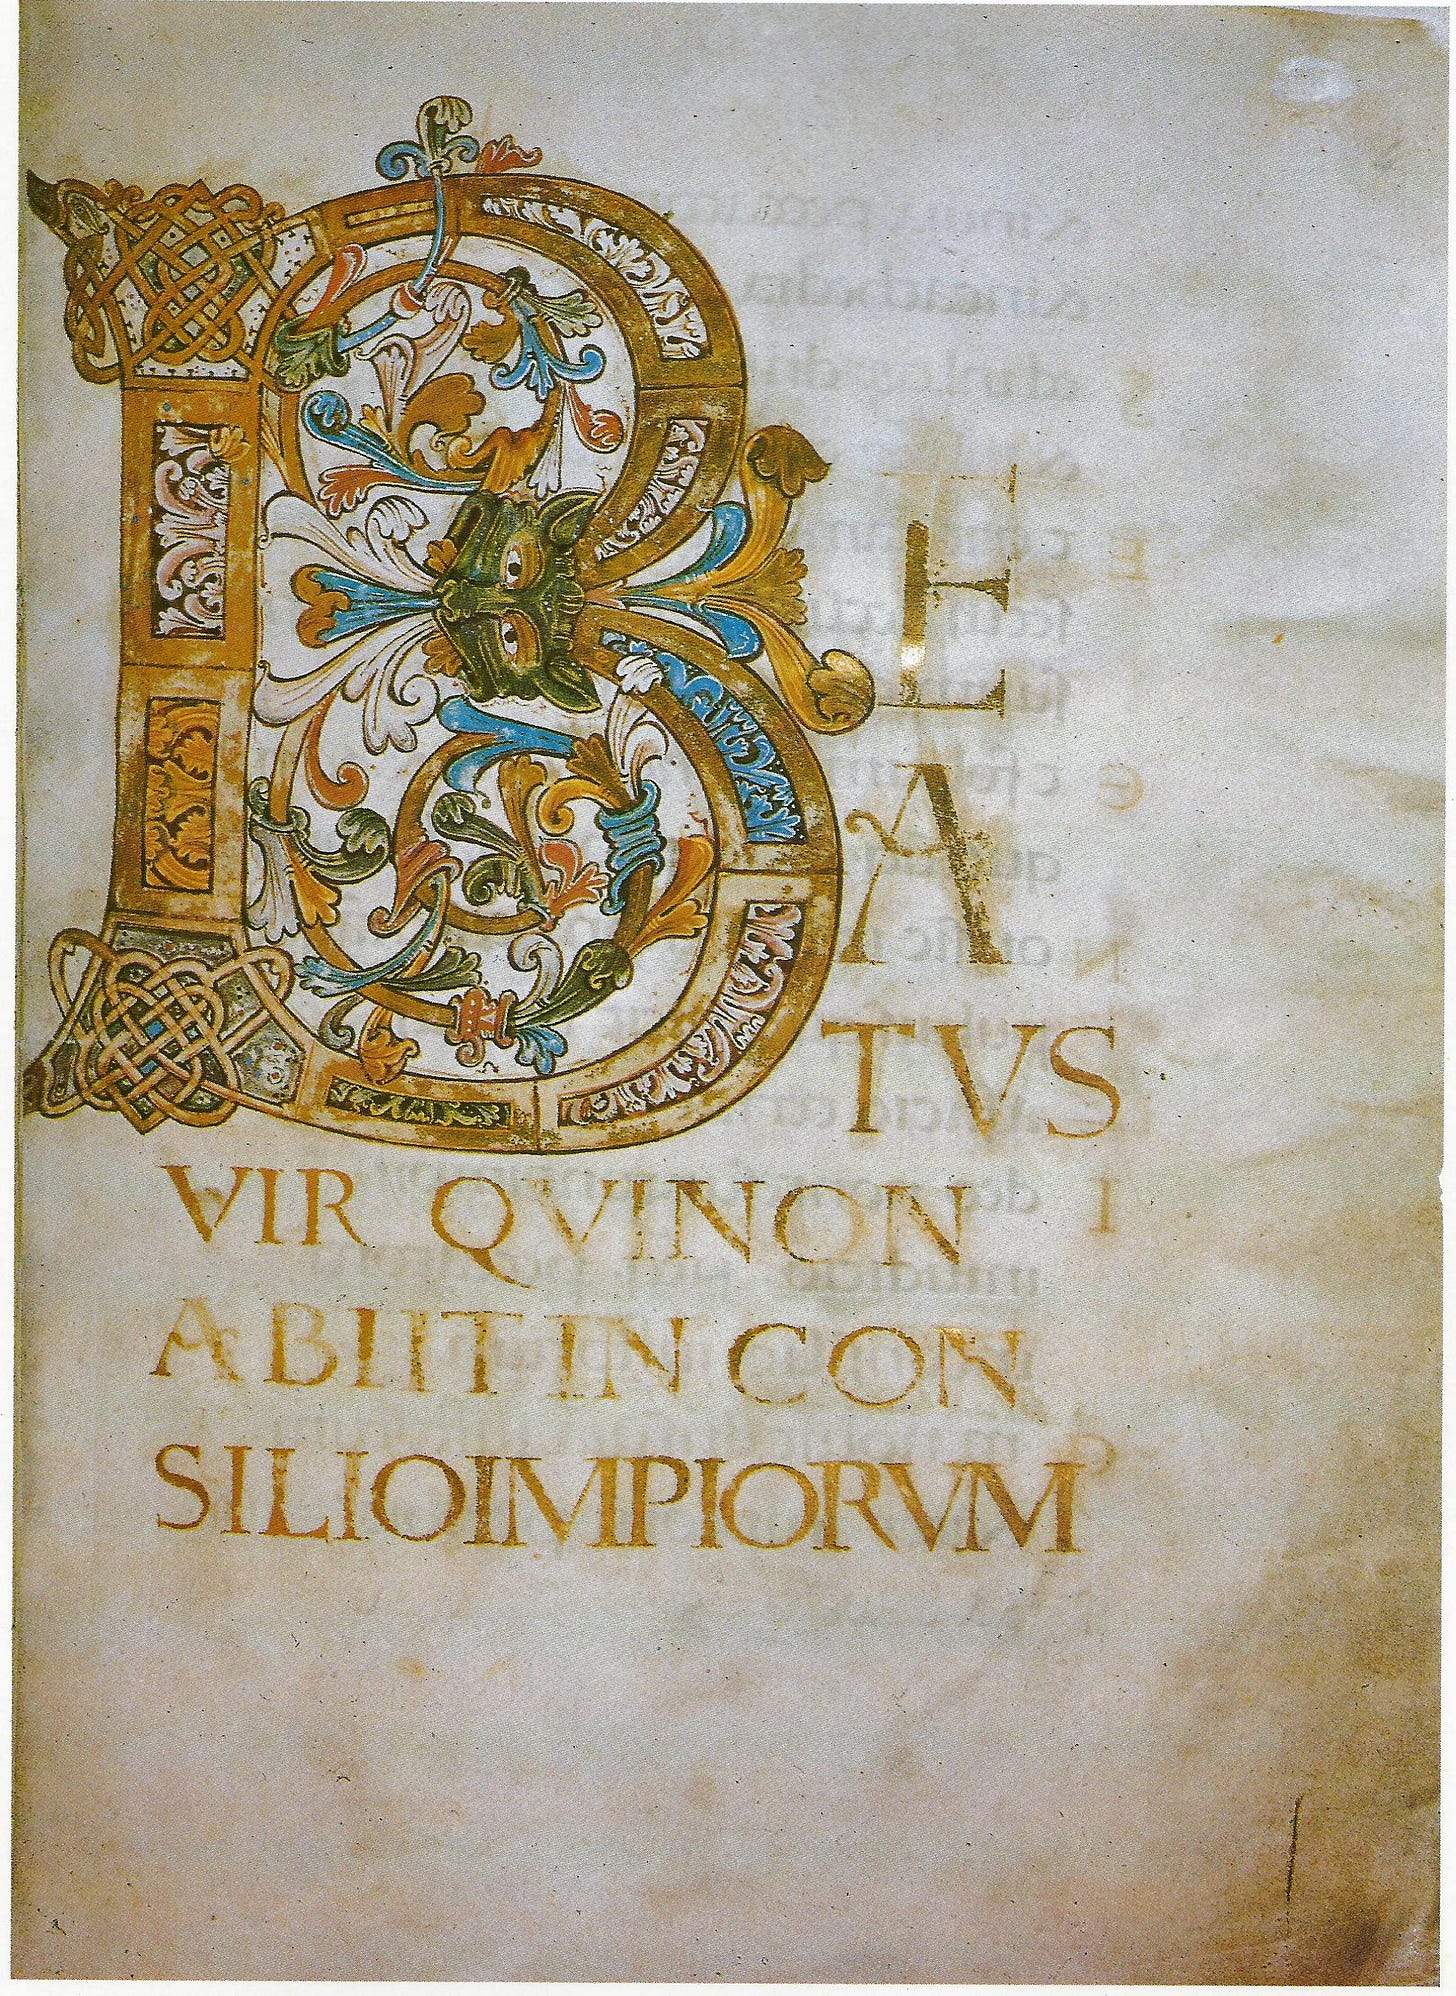 B
E
A
TVS
VIR QVI NON
ABIIT IN CON
SILIO IMPIORVM